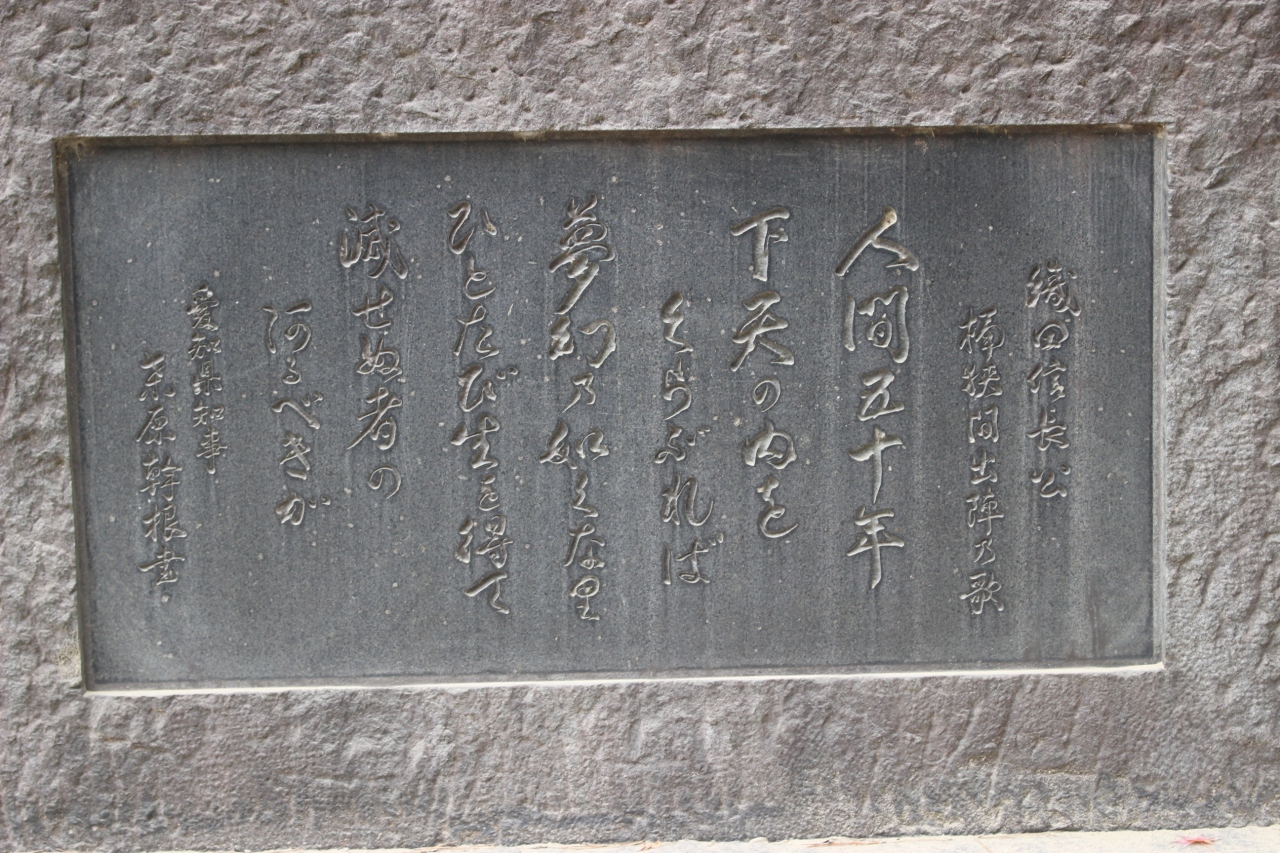 織田信長公
桶狭間出陣乃歌
人間五十年
下天の内を
くらぶれば
夢幻乃如くな里
ひとたび生を得て
滅せぬ者の
阿るべきが
愛知県知事
桒原幹根書